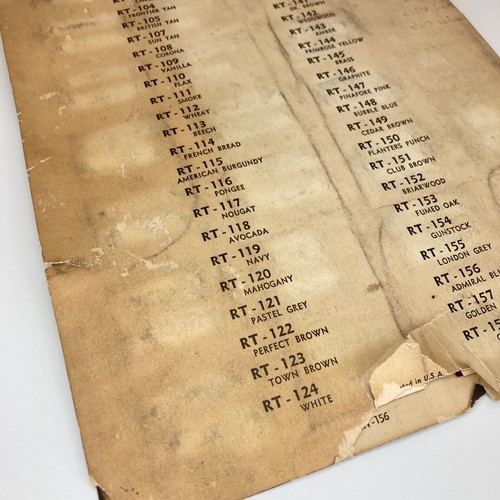 RT - 104
FRONTIER TAN
RT - 105
BRITISH TAN
RT - 107
SUN TAN
RT - 108
CORONA
RT - 109
VANILLA
RT - 110
FLAX
RT - 111
SMOKE
RT - 112
WHEAT
RT - 113
BEECH
RT - 114
FRENCH BREAD
RT - 115
AMERICAN BURGUNDY
RT - 116
PONGEE
RT - 117
NOUGAT
RT - 118
AVOCADA
RT - 119
NAVY
RT - 120
MAHOGANY
RT - 121
PASTEL GREY
RT - 122
PERFECT BROWN
RT - 123
TOWN BROWN
RT - 124
WHITE
RT - 141
DK. BROWN
RT - 142
WEDGWOOD
RT - 143
AMBER
RT - 144
PRIMROSE YELLOW
RT - 145
BRASS
RT - 146
GRAPHITE
RT - 147
PINAFORE PINK
RT - 148
BUBBLE BLUE
RT - 149
CEDAR BROWN
RT - 150
PLANTERS PUNCH
RT - 151
CLUB BROWN
RT - 152
BRIARWOOD
RT - 153
FUMED OAK
RT - 154
GUNSTOCK
RT - 155
LONDON GREY
RT - 156
ADMIRAL BL
RT - 157
GOLDEN
RT - 15
in U.S.A.
-156